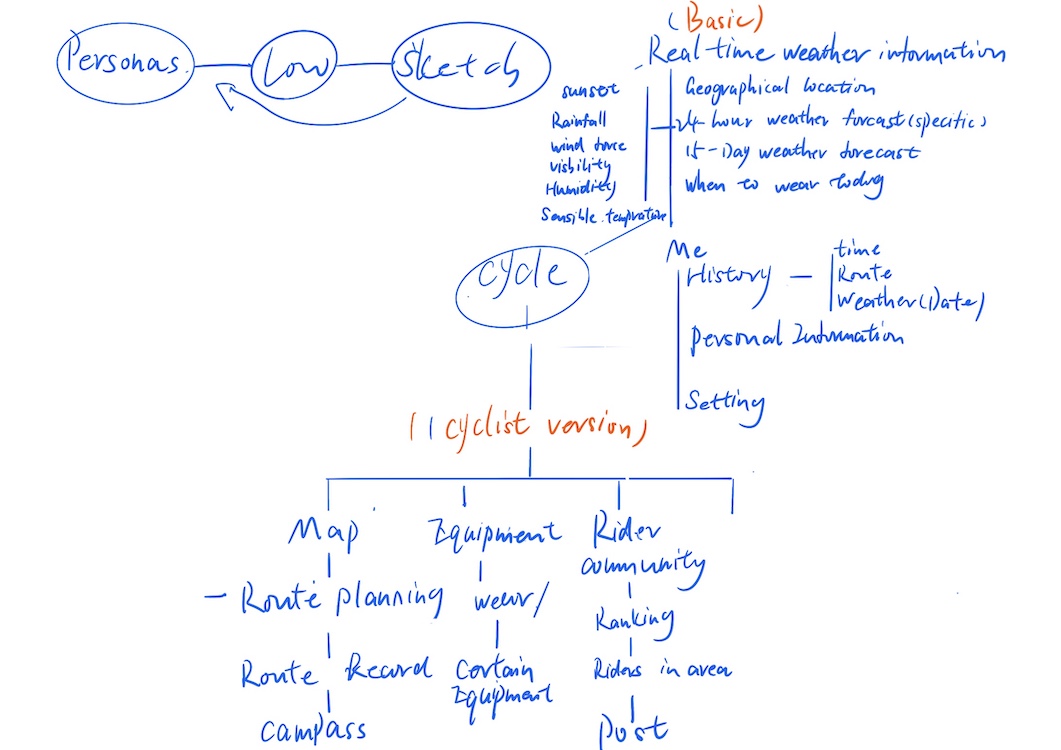 Personas
Low
Sketch
(Basic)
Real time weather information
Geographical location
24-hour weather forcast (specific)
15-Day weather forecast
When to wear today
sunset
Rainfall
wind force
visbility
Humidity
Sensible temprature
cycle
Me
History
time
Route
Weather (Date)
Personal Information
Setting
(cyclist version)
Map
Route planning
Route Record
Campass
Equipment
wear/
Certain
Equipment
Rider
community
Ranking
Riders in area
Post